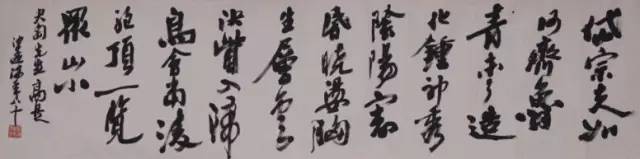 岱宗夫如
何齊魯
青未了造
化鍾神秀
陰陽割
昏曉盪胸
生層雲
決眥入歸
鳥會當凌
絕頂一覽
眾山小
先生